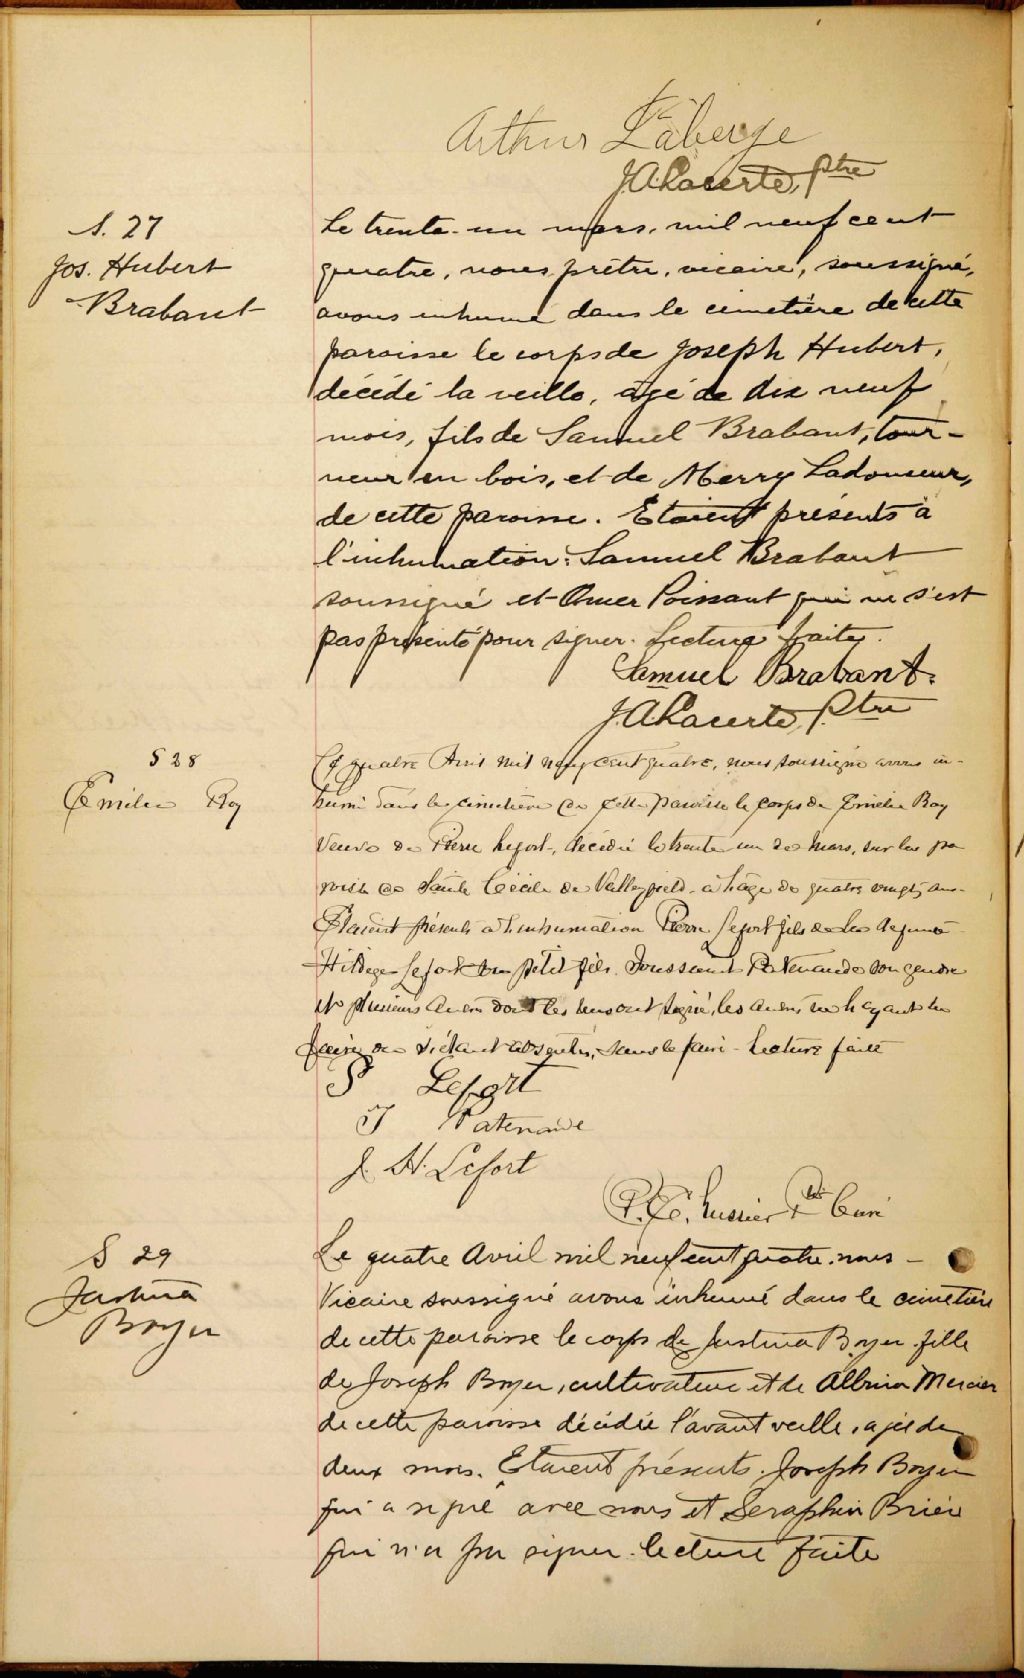 Arthur Laberge
J.A. Lacerte, Ptre
S. 27
Jos. Hubert
Brabant
Le trente-un mars, mil neuf cent
quatre, nous, prêtre, vicaire, soussigné,
avons inhumé dans le cimetière de cette
paroisse le corps de Joseph Hubert,
décédé la veille, agé de dix neuf
mois, fils de Samuel Brabant, tour-
neur en bois, et de Merry Ladouceur,
de cette paroisse. Etaient présents à
l'inhumation: Samuel Brabant
soussigné et Omer Poissant qui ne s'est
pas présenté pour signer. Lecture faite.
Samuel Brabant.
J.A. Lacerte, Ptre
S 28
Emélie Roy
Le quatre Avril mil neuf cent quatre, nous soussigné avons in-
humé dans le cimetière de cette paroisse le corps de Emélie Roy
Veuve de Pierre Lefort, décédée le trente un de Mars, sur la pa
roisse de Sainte Cécile de Valleyfield à l'âge de quatre vingts ans.
Etaient présents à l'inhumation Pierre Lefort fils de la défunte
Hildège Lefort petit fils. Toussaint Patenaude son gendre
et plusieurs autres dont les uns ont signé, les autres ne l'ayant su
faire ou s'étant absentés, sans le faire - Lecture faite
P Lefort
T Patenaude
J. H. Lefort
P. E. Lussier Ptre Curé
S 29
Justina
Boyer
Le quatre Avril mil neuf cent quatre, nous -
Vicaire soussigné avons inhumé dans le cimetière
de cette paroisse le corps de Justina Boyer fille
de Joseph Boyer, cultivateur et de Albina Mercier
de cette paroisse décédée l'avant veille, agée de
deux mois. Etaient présents. Joseph Boyer
qui a signé avec nous et Seraphin Brière
qui n'a pu signer. lecture faite